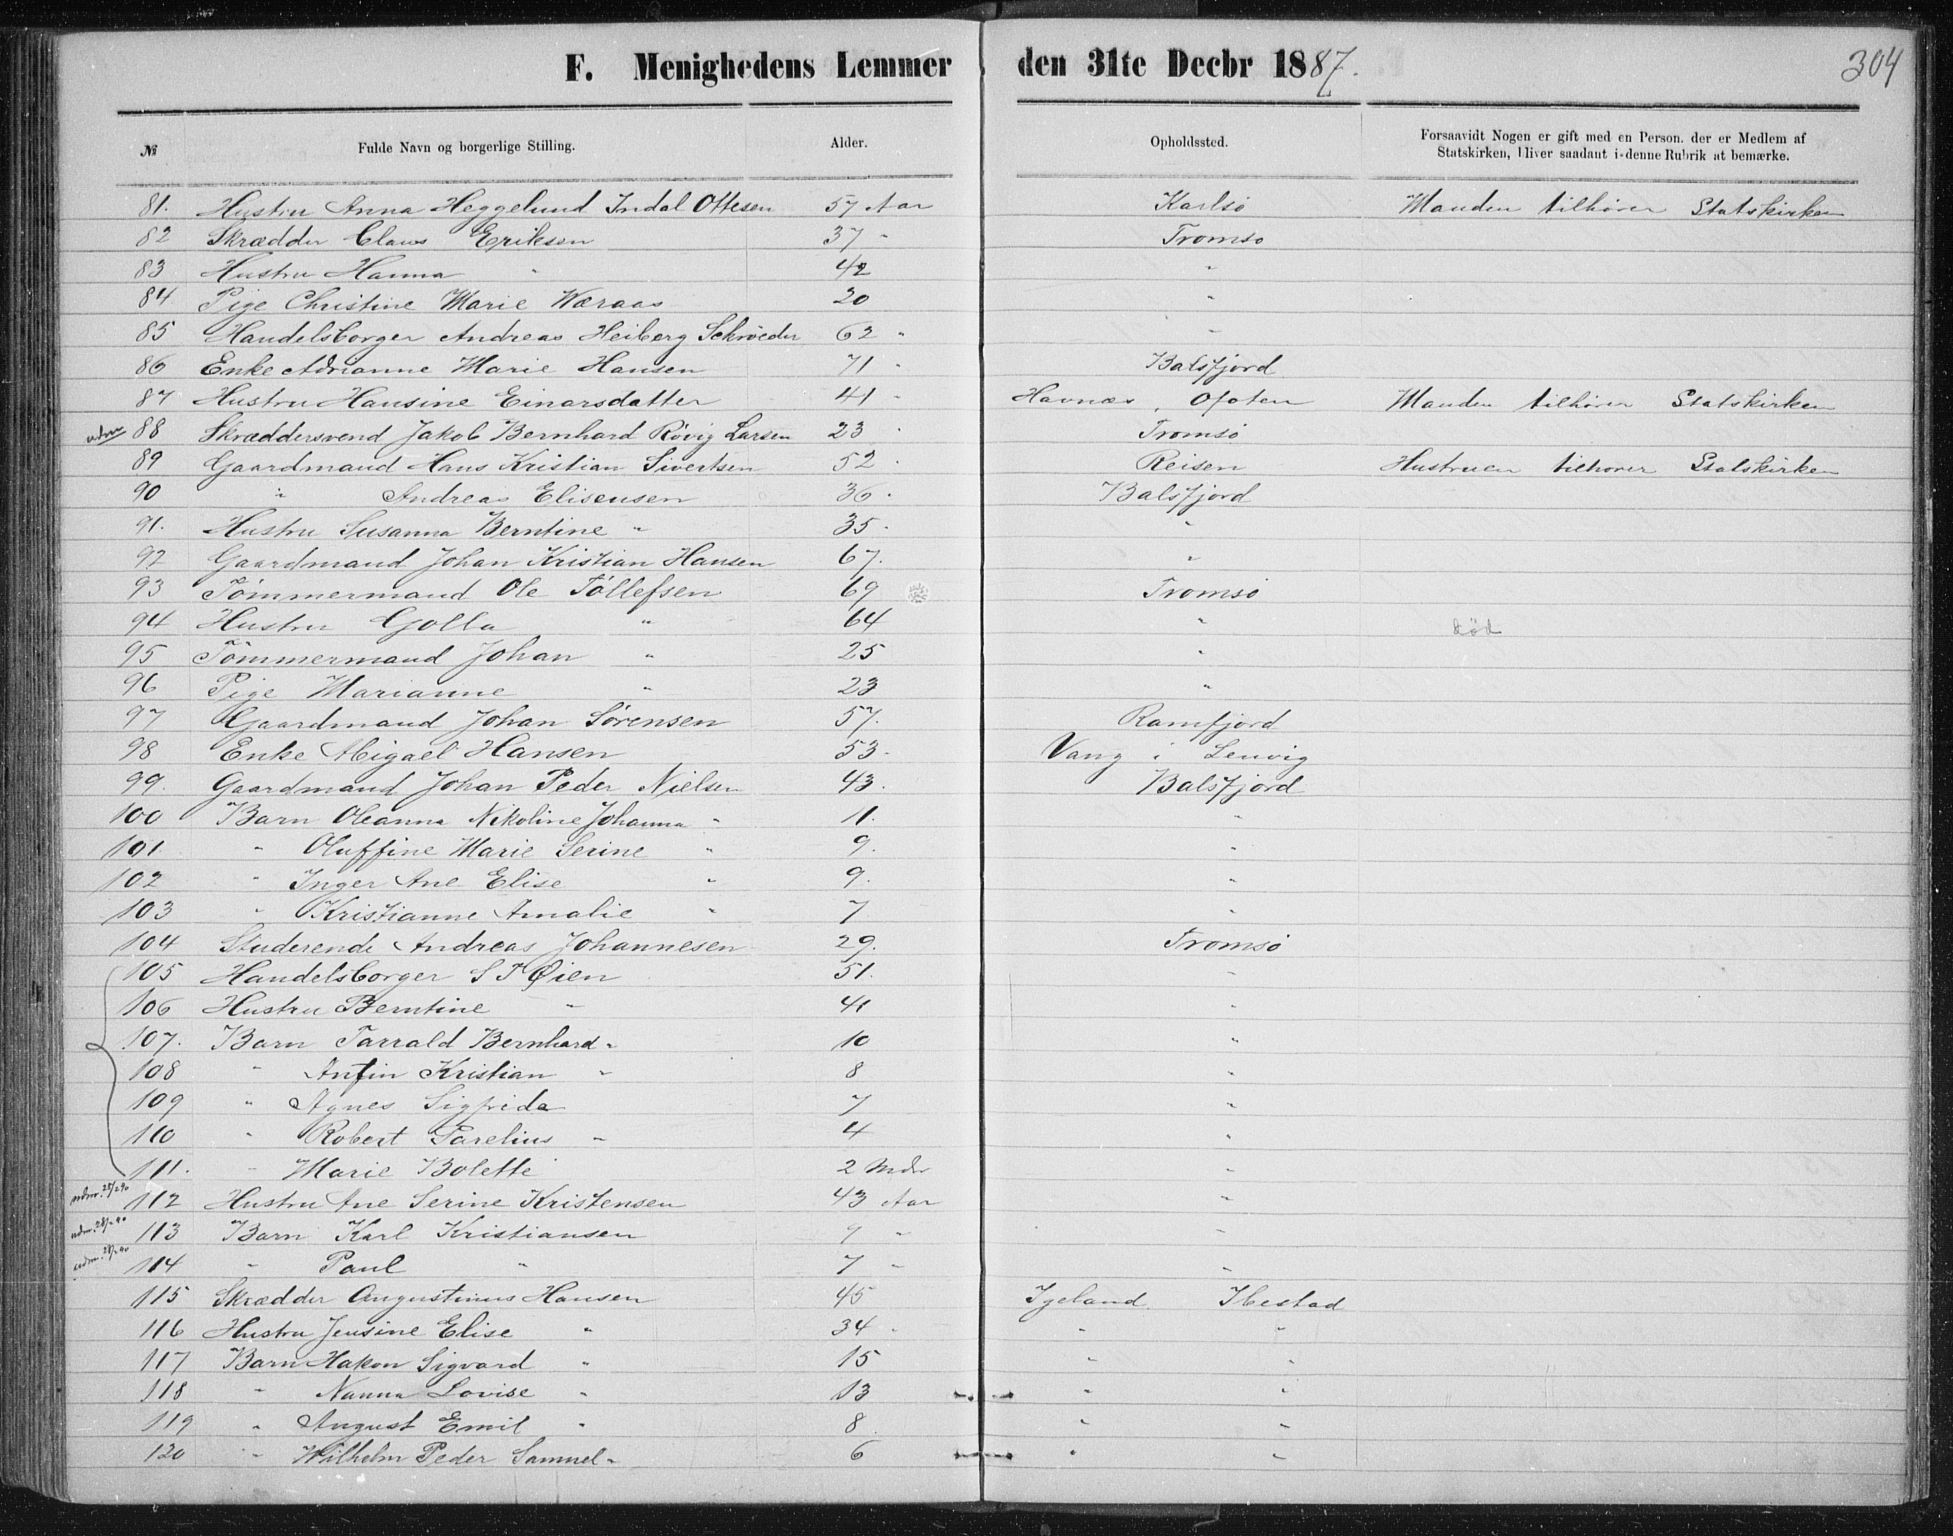 F. Menighedens Lemmer den 31te Decbr 1887. 304
№ Fulde Navn og borgerlige Stilling. Alder. Opholdssted. Forsaavidt Nogen er gift med en Person, der er Medlem af
Statskirken, bliver saadant i denne Rubrik at bemærke.
81. Hustru Anna Heggelund Indal Ottesen 57 Aar Karlsö Manden tilhører Statskirken
82 Skrædder Claus Eriksen 37 " Tromsø
83 Hustru Hanna " 42 "
84 Pige Christine Marie Wæraas 20 "
85 Handelsborger Andreas Heiberg Schröeder 62 " "
86 Enke Adrianne Marie Hansen 71 " Balsfjord
87 Hustru Hansine Einarsdatter 41 " Havnæs, Ofoten Manden tilhører Statskirken
udm 88 Skræddersvend Jakob Bernhard Rövig Larsen 23 " Tromsö
89 Gaardmand Hans Kristian Sivertsen 52 " Reisen Hustruen tilhører Statskirken
90 " Andreas Elisensen 36 " Balsfjord
91. Hustru Susanna Berntine " 35 " "
92 Gaardmand Johan Kristian Hansen 67. "
93 Tömmermand Ole Töllefsen 69 Tromsö
94 Hustru Golla " 64 " död
95 Tömmermand Johan " 25 "
96 Pige Marianne " 23 "
97 Gaardmand Johan Sörensen 57. Ramfjord
98 Enke Abigael Hansen 53 " Vang i Lenvig
99. Gaardmand Johan Peder Nielsen 43. Balsfjord
100 Barn Oleanna Nikoline Johanna " 11. "
101 " Oluffine Marie Serine " 9. "
102 " Inger Ane Elise " 9. "
103 " Kristianne Amalie " 7 "
104 Studerende Andreas Johannesen 29. Tromsö
105 Handelsborger S T Øien 51. "
106 Hustru Berntine " 41 "
107. Barn Tarrald Bernhard " 10 "
108 " Anfin Kristian " 8 "
109 " Agnes Sigfrida 7 "
110 " Robert Parelius " 4 "
111. " Marie Bolette 2 Mdr "
udm. 28/2 90 112 Hustru Ane Serine Kristensen 43 Aar "
udm. 28/2 90 113 Barn Karl Kristiansen 9 " "
udm. 28/2 90 114 " Paul " 7 " "
115 Skrædder Augustinus Hansen 45 Igeland Ibestad
116 Hustru Jensine Elise " 34 " " "
117 Barn Hakon Sigvard " 15 " "
118 " Nanna Lovise " 13 " "
119 " August Emil " 8 " "
120 " Wilhelm Peder Samuel " 6 " "